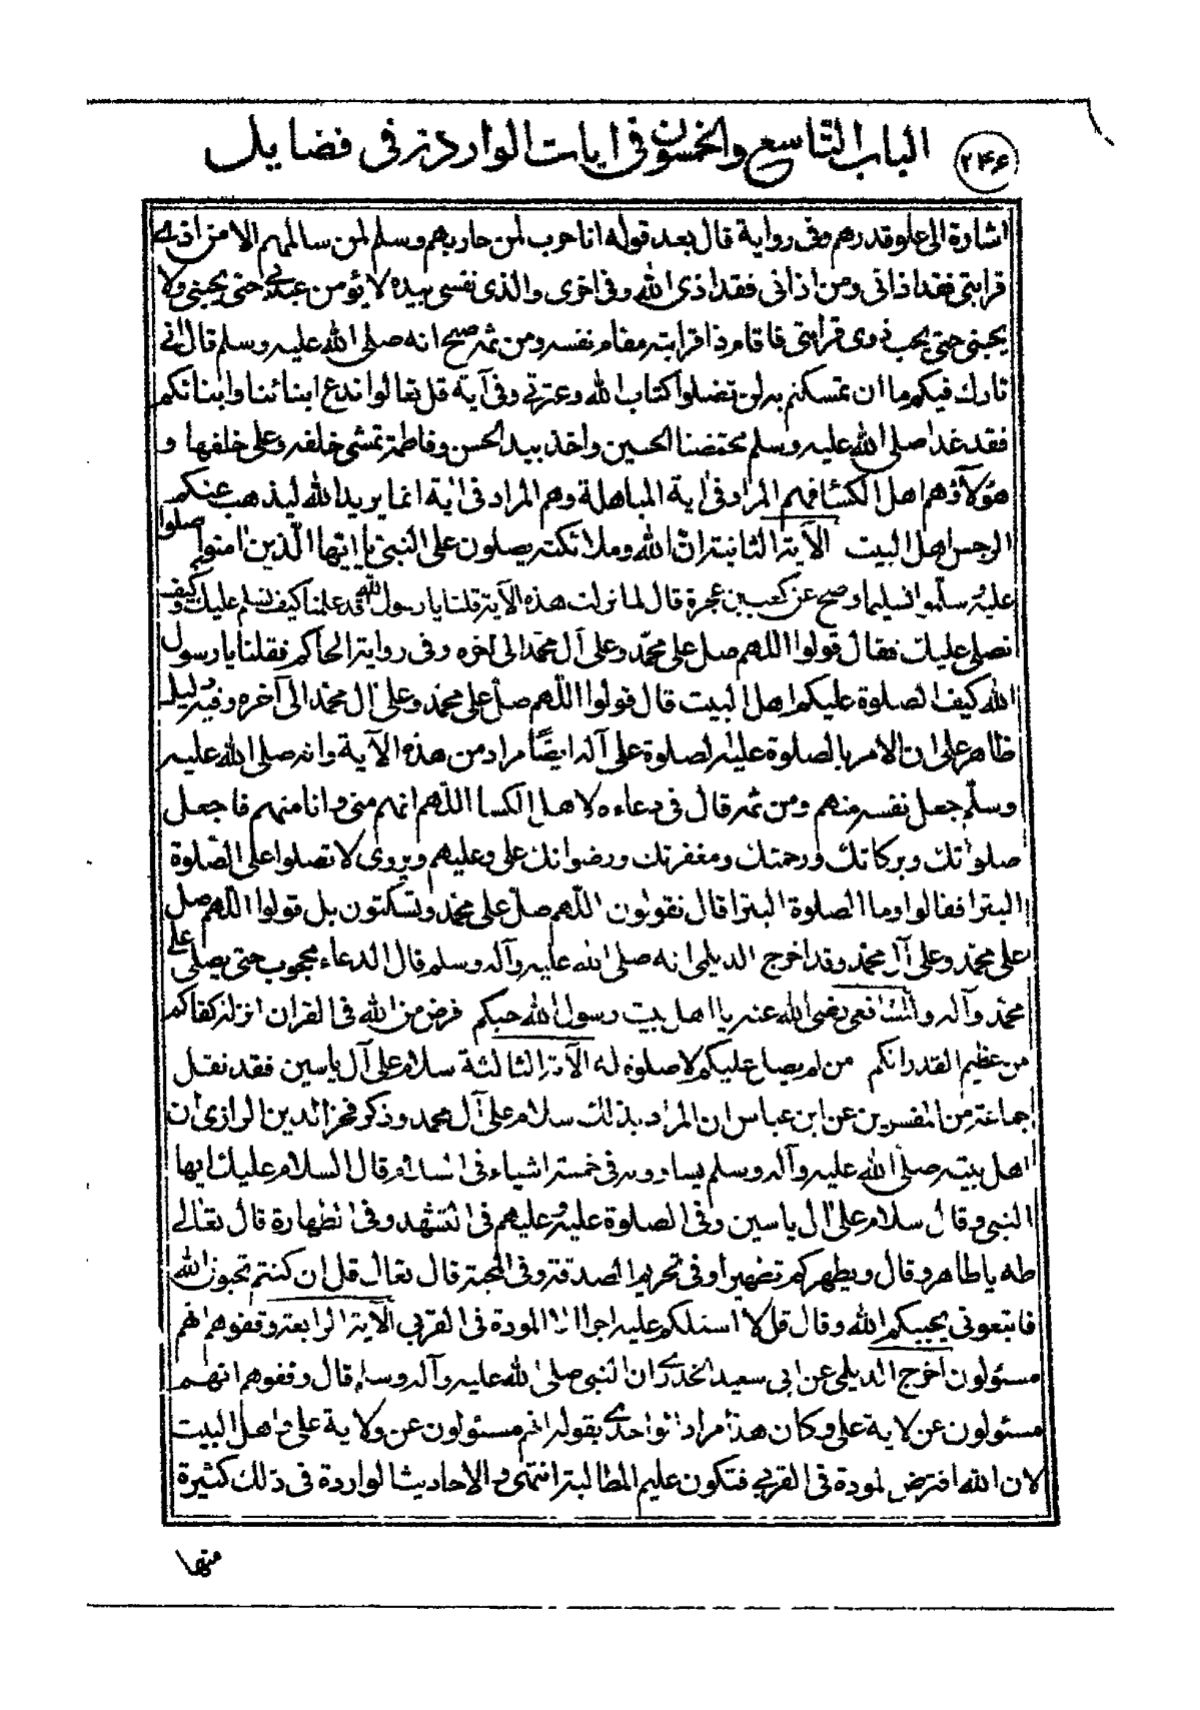 ٢٤۶ الباب التاسع والخمسون فى ايات الواردة فى فضايل
اشارة الى علو قدرهم وفى رواية قال بعد قوله انا حرب لمن حاربهم وسلم لمن سالمهم الا من اذى
قرابتى فقد اذانى ومن اذانى فقد اذى الله وفى اخرى والذى نفسى بيده لا يؤمن عبد بى حتى يحبنى ولا
يحبنى حتى يحب ذوى قرابتى فاقام ذا قرابته مقام نفسه ومن ثم صح انه صلى الله عليه وسلم قال انى
تارك فيكم ما ان تمسكتم به لن تضلوا كتاب الله وعترتى وفى آية قل تعالوا ندع ابنائنا وابنائكم
فقد غدا صلى الله عليه وسلم محتضنا الحسين واخذ بيد الحسن وفاطمة تمشى خلفه وعلى خلفها و
هؤلاء هم اهل الكسا فهم المراد فى اية المباهلة وهم المراد فى اية انما يريد الله ليذهب عنكم
الرجس اهل البيت الآية الثانية ان الله وملائكته يصلون على النبى يا ايها الذين امنوا صلوا
عليه وسلموا تسليما وصح عن كعب بن عجرة قال لما نزلت هذه الآية قلنا يا رسول الله قد علمنا كيف نسلم عليك وكيف
نصلى عليك فقال قولوا اللهم صل على محمد وعلى آل محمد الى اخره وفى رواية الحاكم فقلنا يا رسول
الله كيف الصلوة عليكم اهل البيت قال قولوا اللهم صل على محمد وعلى آل محمد الى آخره وفيه دليل
ظاهر على ان الامر بالصلوة عليه الصلوة على آله ايضا مراد من هذه الآية وانه صلى الله عليه
وسلم جعل نفسه منهم ومن ثم قال فى دعاءه لاهل الكسا اللهم انهم منى وانا منهم فاجعل
صلواتك وبركاتك ورحمتك ومغفرتك ورضوانك على وعليهم ويروى لا تصلوا على الصلوة
البترا فقالوا وما الصلوة البترا قال تقولون اللهم صل على محمد وتسكتون بل قولوا اللهم صل
على محمد وعلى آل محمد وقد اخرج الديلمى انه صلى الله عليه وآله وسلم قال الدعاء محجوب حتى يصلى على
محمد وآله والشافعى رضى الله عنه يا اهل بيت رسول الله حبكم فرض من الله فى القران انزله كفاكم
من عظيم القدر انكم من لم يصل عليكم لا صلوة له الآية الثالثة سلام على آل ياسين فقد نقل
جماعة من المفسرين عن ابن عباس ان المراد بذلك سلام على آل محمد وذكر فخر الدين الرازى ان
اهل بيته صلى الله عليه وآله وسلم يساوونه فى خمسة اشياء فى السلام قال السلام عليك ايها
النبى وقال سلام على ال ياسين وفى الصلوة عليه وعليهم فى التشهد وفى الطهارة قال تعالى
طه يا طاهر وقال ويطهركم تطهيرا وفى تحريم الصدقة وفى المحبة قال تعالى قل ان كنتم تحبون الله
فاتبعونى يحببكم الله وقال قل لا اسئلكم عليه اجرا الا المودة فى القربى الآية الرابعة وقفوهم انهم
مسئولون اخرج الديلمى عن ابى سعيد الخدرى ان النبى صلى الله عليه وآله وسلم قال وقفوهم انهم
مسئولون عن ولاية على وكان هذا مراد الواحدى بقوله انهم مسئولون عن ولاية على واهل البيت
لان الله افترض المودة فى القربى فتكون عليهم المطالبة انتهى والاحاديث الواردة فى ذلك كثيرة
منها